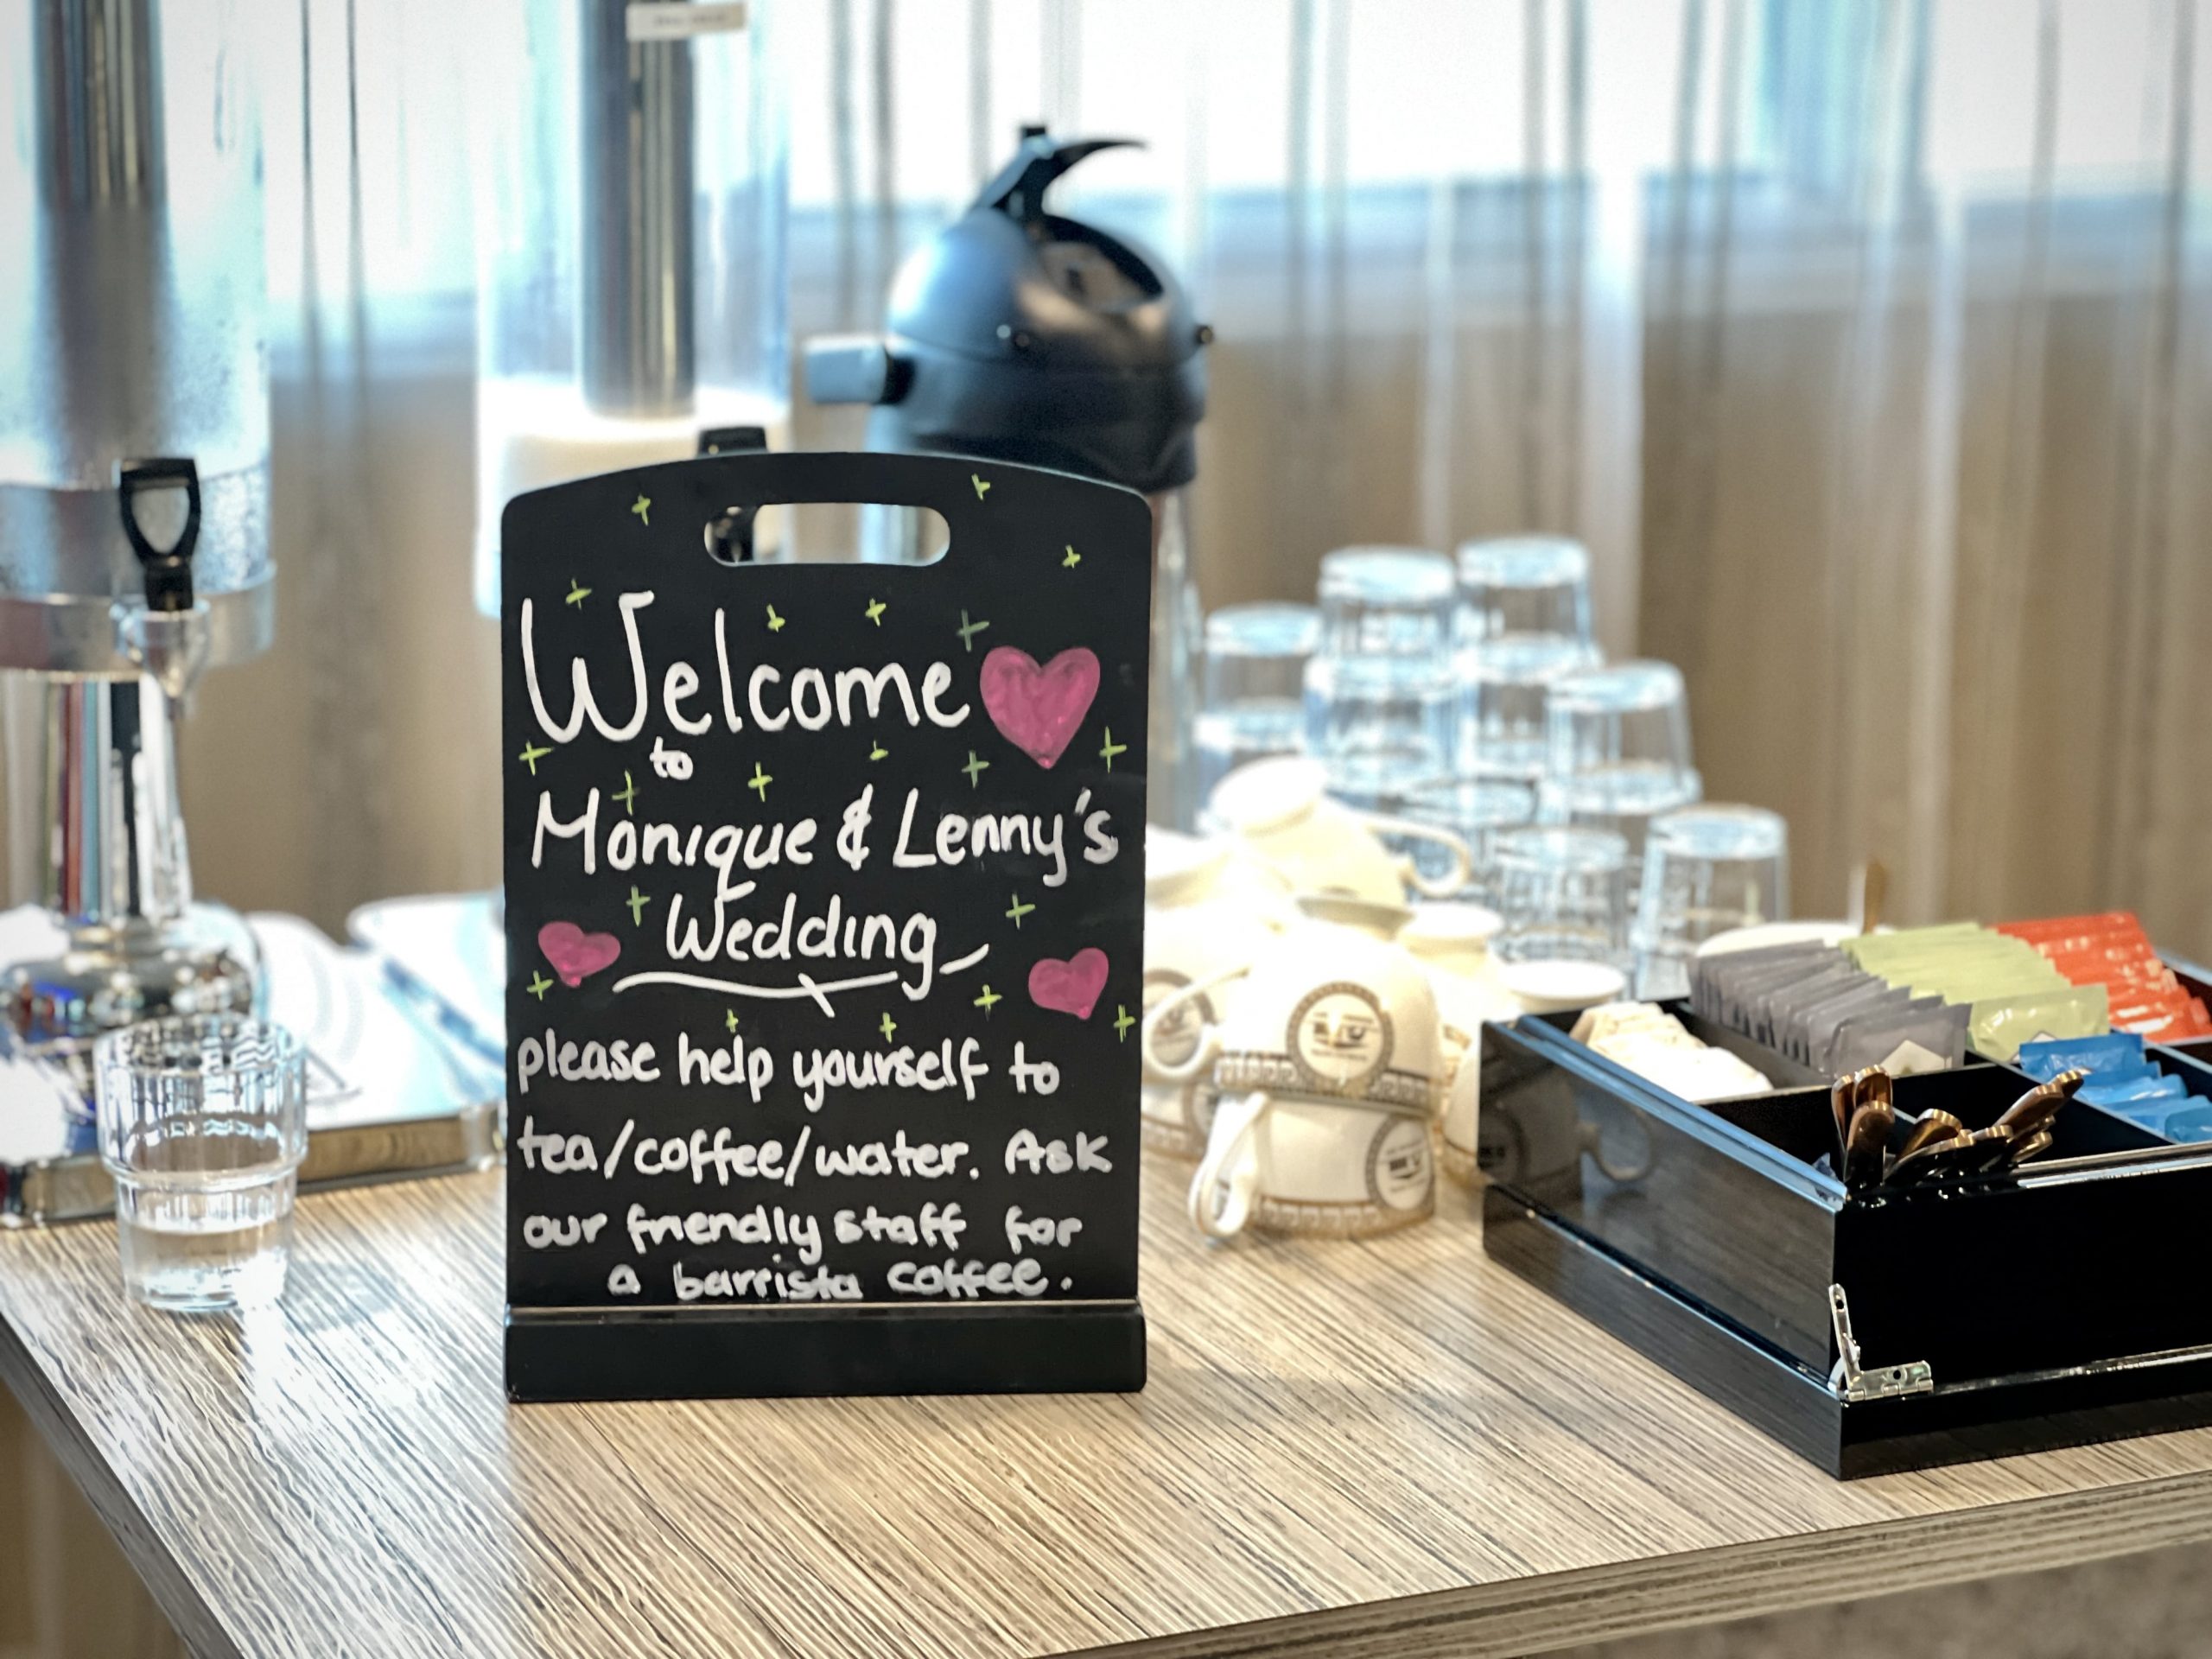 Welcome
to
Monique & Lenny's
Wedding
please help yourself to
tea/coffee/water. Ask
our friendly staff for
a barrista coffee.